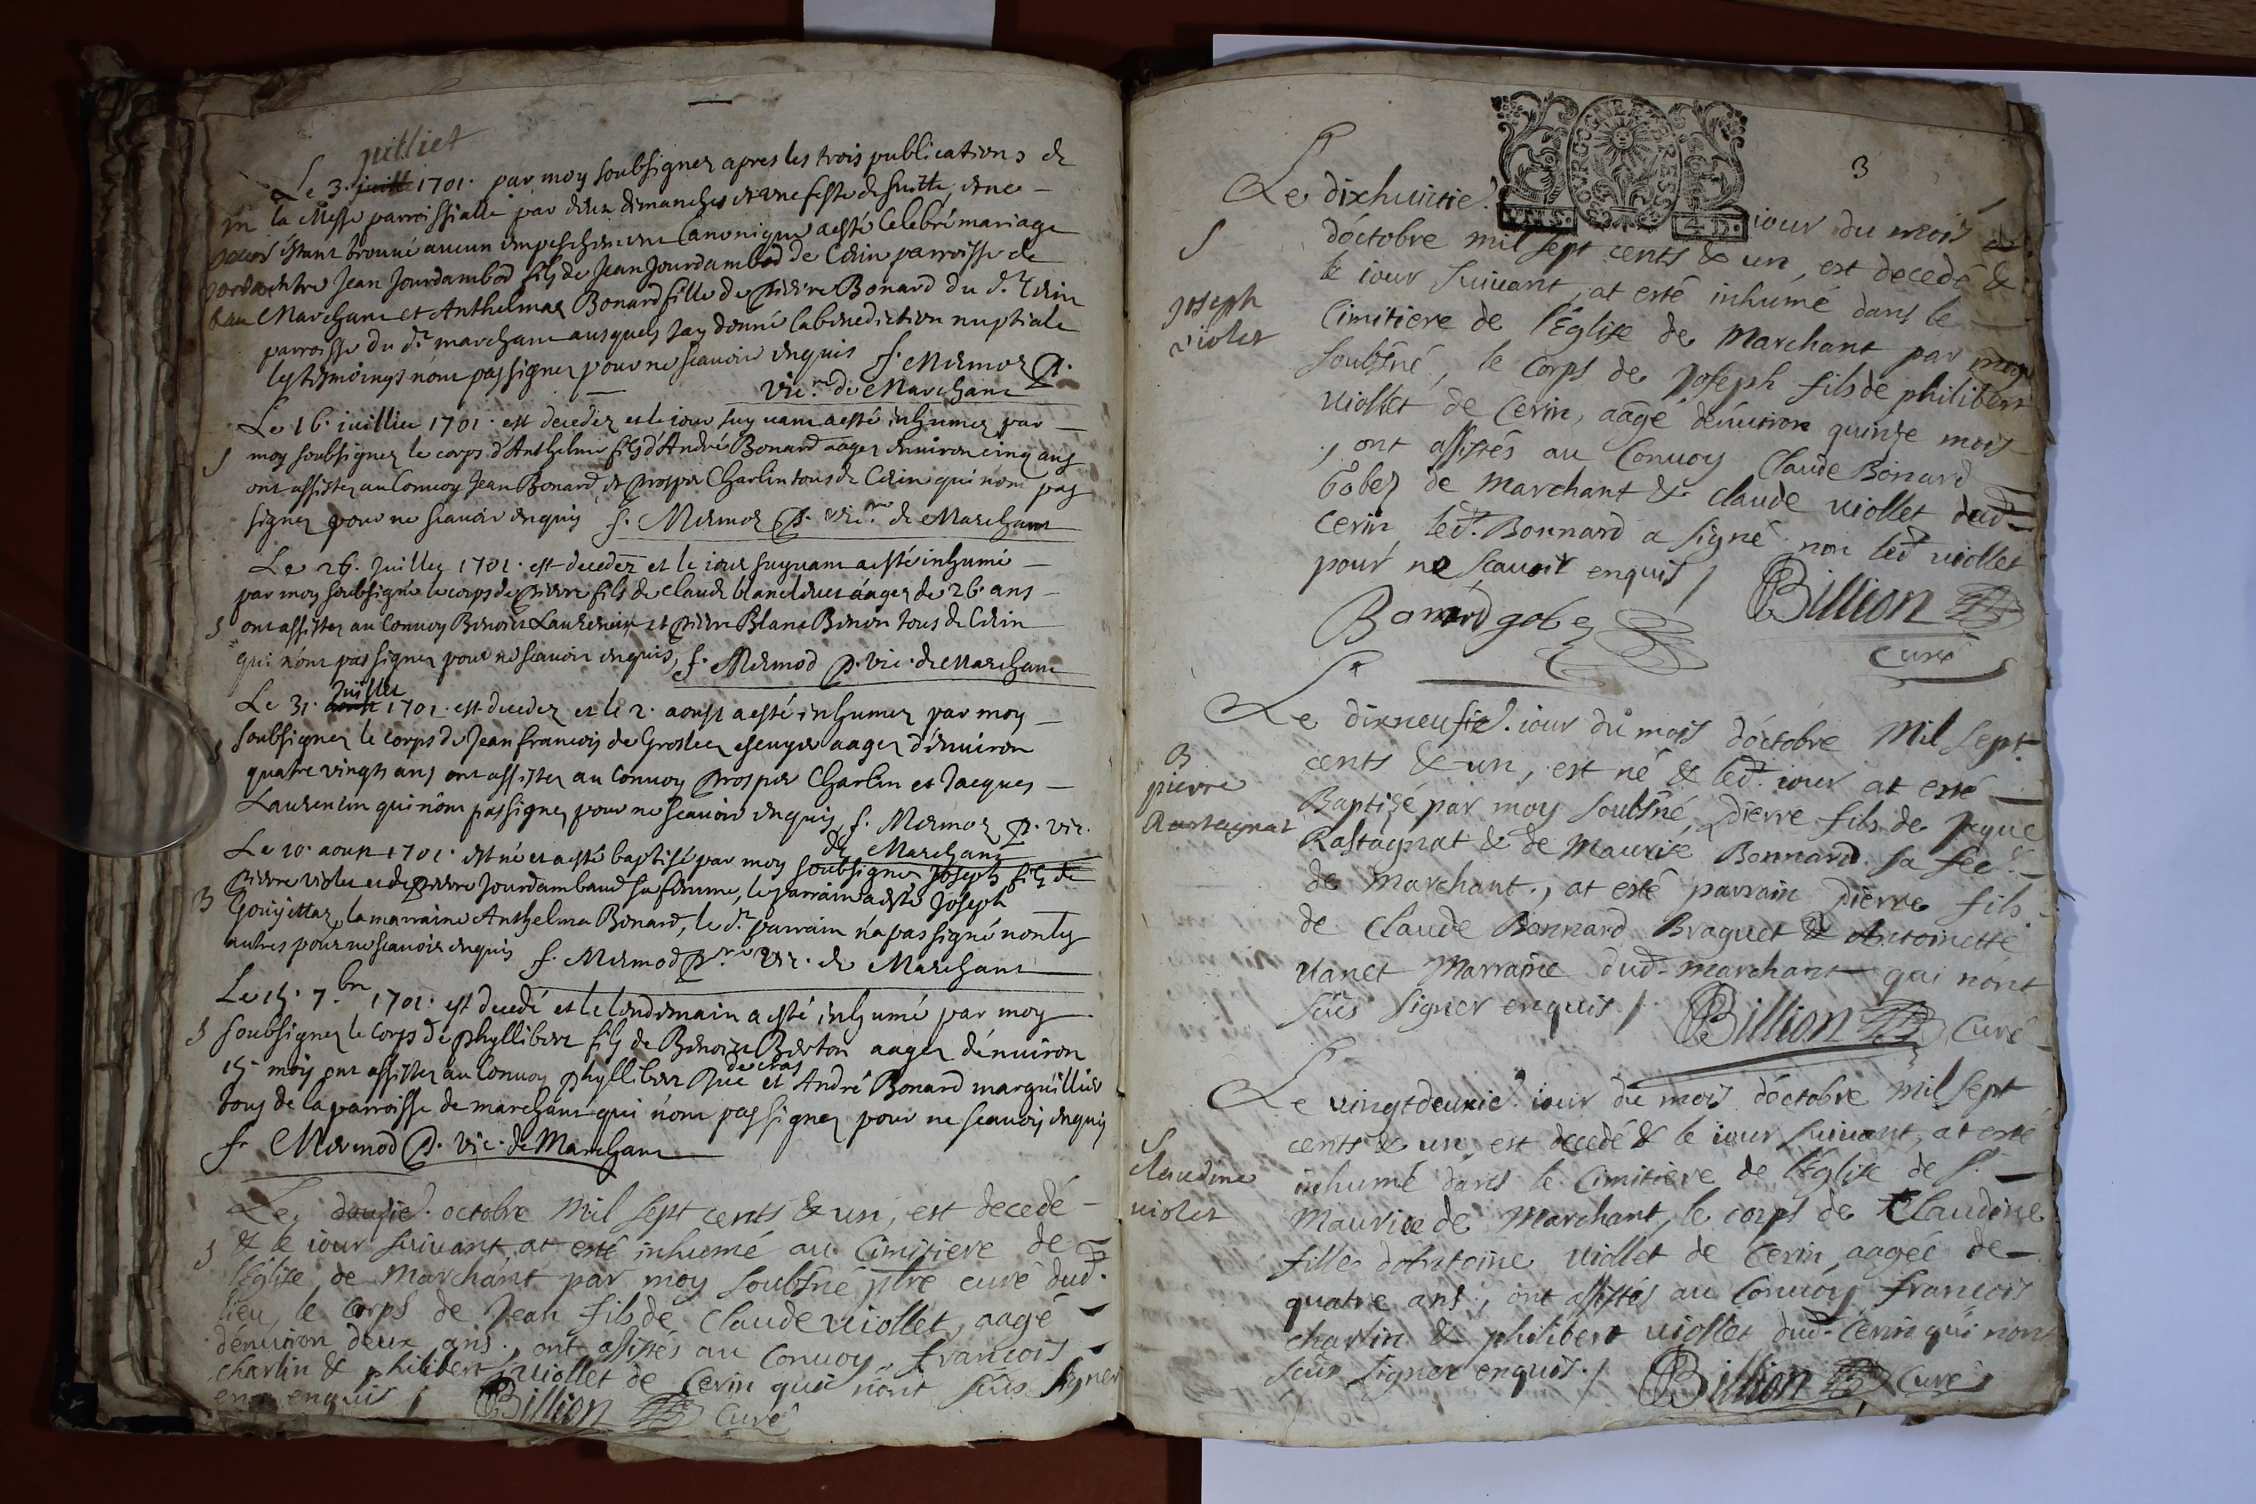 juilliet
Le 3. juillt 1701. par moy soubsignez apres les trois publications de
m la Messe parroissialle par deux dimanches et une feste de suitte, et ne
estant trouvé aucun empeschement Canonique a esté Celebré mariage
entre Jean Jourdambod fils de Jean Jourdambod de Cerin parroisse de
Marchant et Anthelmaz Bonard fille de pierre Bonard du dt Cerin
parroisse du dt marchant ausquels Jay donné la benediction nuptiale
les tesmoings n'ont pas signez pour ne scavoir enquis f. Mermoz p.
vic.re de Marchant
Le 16. juilliet 1701. est decedez et le jour suyvant a esté inhumez par
S moy soubsignez le corps d'Anthelme fils d'André Bonard aagez d'environ cinq ans
ont assistez au Convoy Jean Bonard, et prosper Charlin tous de Cerin qui n'ont pas
signez pour ne scavoir enquis f. Mermoz p. vic.re de Marchant
Le 26. Juillez 1701. est decedez et le jour suyvant a esté inhumé
par moy soubsigné le corps de pierre fils de Claude blanc aagez de 26. ans
S ont assistez au Convoy Benoist Laurencin et pierre Blanc Benon tous de Cerin
qui n'ont pas signez pour ne scavoir enquis, f. Mermod p. vic. de Marchant
Juillet
Le 31. aoust 1701. est decedez et le 2. aoust a esté inhumez par moy
S soubsignez le corps de Jean francois de Groslee escuyer aagez d'environ
quatre vingts ans ont assistez au Convoy prosper Charlin et Jacques
Laurencin qui n'ont pas signez pour ne scavoir enquis f. Mermoz p. vic.
de Marchant
Le 10. aoust 1701. est né et a esté baptisé par moy soubsignez Joseph fils de
pierre violet et de pierre Jourdambaud sa femme, le parrain a esté Joseph
B Goujettaz, la marraine Anthelma Bonard, le dt parrain n'a pas signé non les
autres pour ne scavoir enquis f. Mermod p.re vic. de Marchant
Le 15. 7.bre 1701. est decedé et le lendemain a esté inhumé par moy
S soubsignez le Corps de phyllibert fils de Benoist Berton aagez d'environ
15. mois ont assistez au Convoy phyllibert de cras et André Bonard marguillier
tous de la parroisse de marchant qui n'ont pas signez pour ne scavoir enquis
f. Mermod p. vic. de Marchant
Le douzie. octobre Mil sept cents & un, est decedé
S & le iour suivant at esté inhumé au Cimitiere de
l'Eglise de Marchant par moy soubsné ptre curé dud.
lieu, le Corps de Jean fils de Claude viollet, aagé
d'environ deux ans, ont assistés au Convoy francois
charlin & philibert viollet de Cerin qui n'ont sceus signer
enquis / Billion Curé
3
Le dixhuitie. iour du mois
COURCE ET BRESSE
S d'octobre mil sept cents & un, est decedé &
le iour suivant, at esté inhumé dans le
Joseph
violet
Cimitiere de l'Eglise de Marchant par moy
soubsné, le Corps de Joseph fils de philibert
viollet de Cerin, aagé d'environ quinze mois
, ont assistés au Convoy Claude Bonard
Gobez de Marchant & claude viollet dud.
Cerin, led. Bonnard a signé non led. viollet
pour ne scavoir enquis /
Billion
Bonard gobez
Curé
Le dixneufie. iour du mois d'octobre Mil sept
B cents & un, est né & led. iour at esté
pierre
Rastagnat
Baptizé par moy soubsné, Pierre fils de Jaque
Rastagnat & de Maurise Bonnard sa fee.
de Marchant, at esté parrain Pierre fils
de Claude Bonnard Braquet & Antoinette
vanet Marraine dud. marchant qui n'ont
sceus signer enquis / Billion Curé
Le vingtdeuxie. iour du mois d'octobre mil sept
S cents & un, est decedé & le iour suivant, at esté
Claudine
violet
inhumé dans le Cimitiere de l'Eglise de S.
Maurice de Marchant, le corps de Claudine
fille d'Antoine viollet de Cerin, aagée de
quatre ans, ont assistés au Convoy francois
charlin & philibert viollet dud. Cerin qui n'ont
sceus signer enquis. / Billion Curé